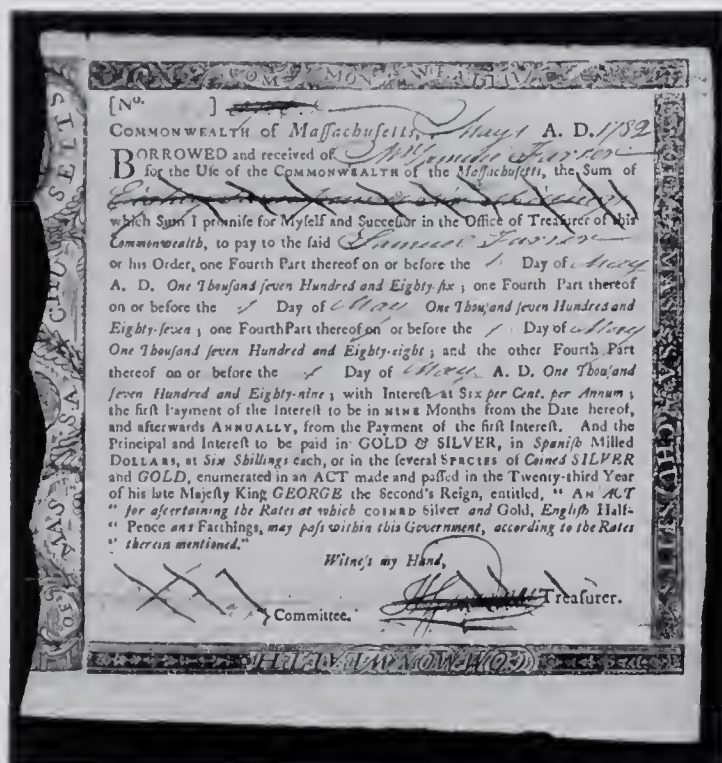 COMMONWEALTH
[No. ]
COMMONWEALTH of Maſſachuſetts, May 1 A. D. 1782
BORROWED and received of Mr Samuel Farrer
for the Uſe of the COMMONWEALTH of the Maſſachuſetts, the Sum of
which Sum I promiſe for Myſelf and Succeſſor in the Office of Treaſurer of this
Commonwealth, to pay to the ſaid Samuel Farrer
or his Order, one Fourth Part thereof on or before the 1 Day of May
A. D. One Thouſand ſeven Hundred and Eighty-ſix; one Fourth Part thereof
on or before the 1 Day of May One Thouſand ſeven Hundred and
Eighty-ſeven; one Fourth Part thereof on or before the 1 Day of May
One Thouſand ſeven Hundred and Eighty-eight; and the other Fourth Part
thereof on or before the 1 Day of May A. D. One Thouſand
ſeven Hundred and Eighty-nine; with Intereſt at SIX per Cent. per Annum;
the firſt Payment of the Intereſt to be in NINE Months from the Date hereof,
and afterwards ANNUALLY, from the Payment of the firſt Intereſt. And the
Principal and Intereſt to be paid in GOLD & SILVER, in Spaniſh Milled
DOLLARS, at Six Shillings each, or in the ſeveral SPECIES of Coined SILVER
and GOLD, enumerated in an ACT made and paſſed in the Twenty-third Year
of his late Majeſty King GEORGE the Second's Reign, entitled, “ AN ACT
“ for aſcertaining the Rates at which COINED Silver and Gold, Engliſh Half-
“ Pence and Farthings, may paſs within this Government, according to the Rates
“ therein mentioned.”
Witneſs my Hand,
Committee. Treaſurer.
COMMONWEALTH
OF MASSACHUSETTS
MASSACHUSETTS